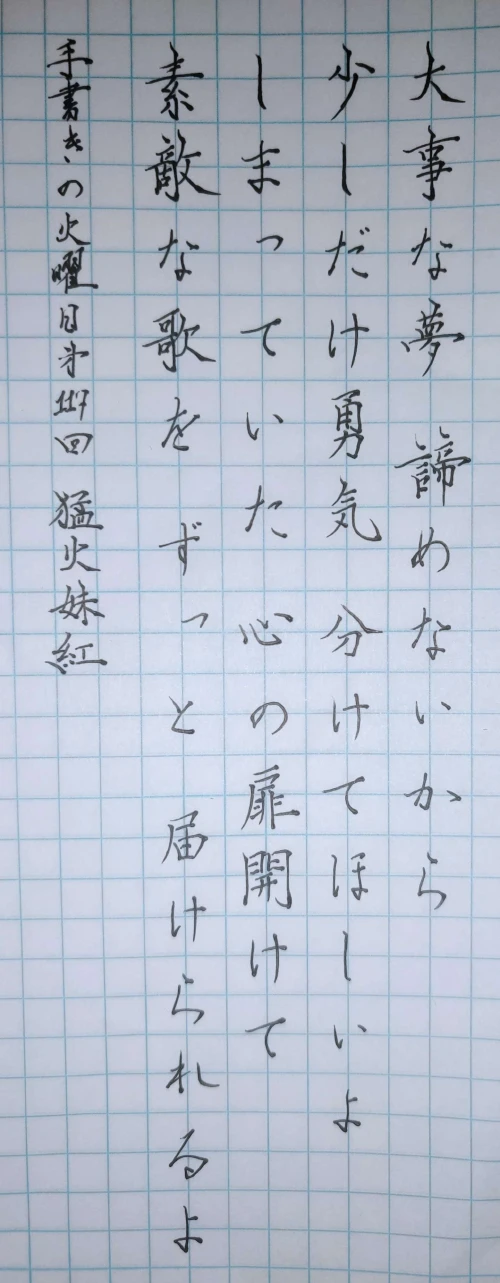 大事な夢 諦めないから
少しだけ勇気 分けてほしいよ
しまっていた 心の扉開けて
素敵な歌を ずっと 届けられるよ
手書きの火曜日 回 猛火妹紅